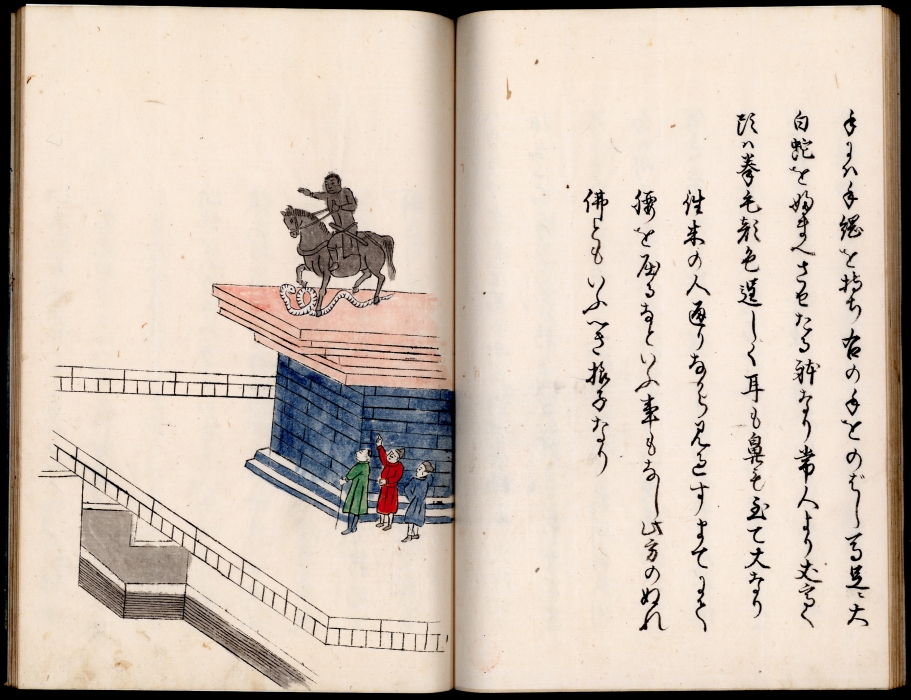 手ニハ手綱を持ち右の手をのばし馬足ニ大
白蛇をふまへさせたる躰なり常人より丈高く
頭ハ拳毛顔色逞しく耳も鼻も至て大なり
往来の人通りながら見通すまてにて
腰を屈るなといふ事もなし此方のぬれ
佛ともいふへき様子なり